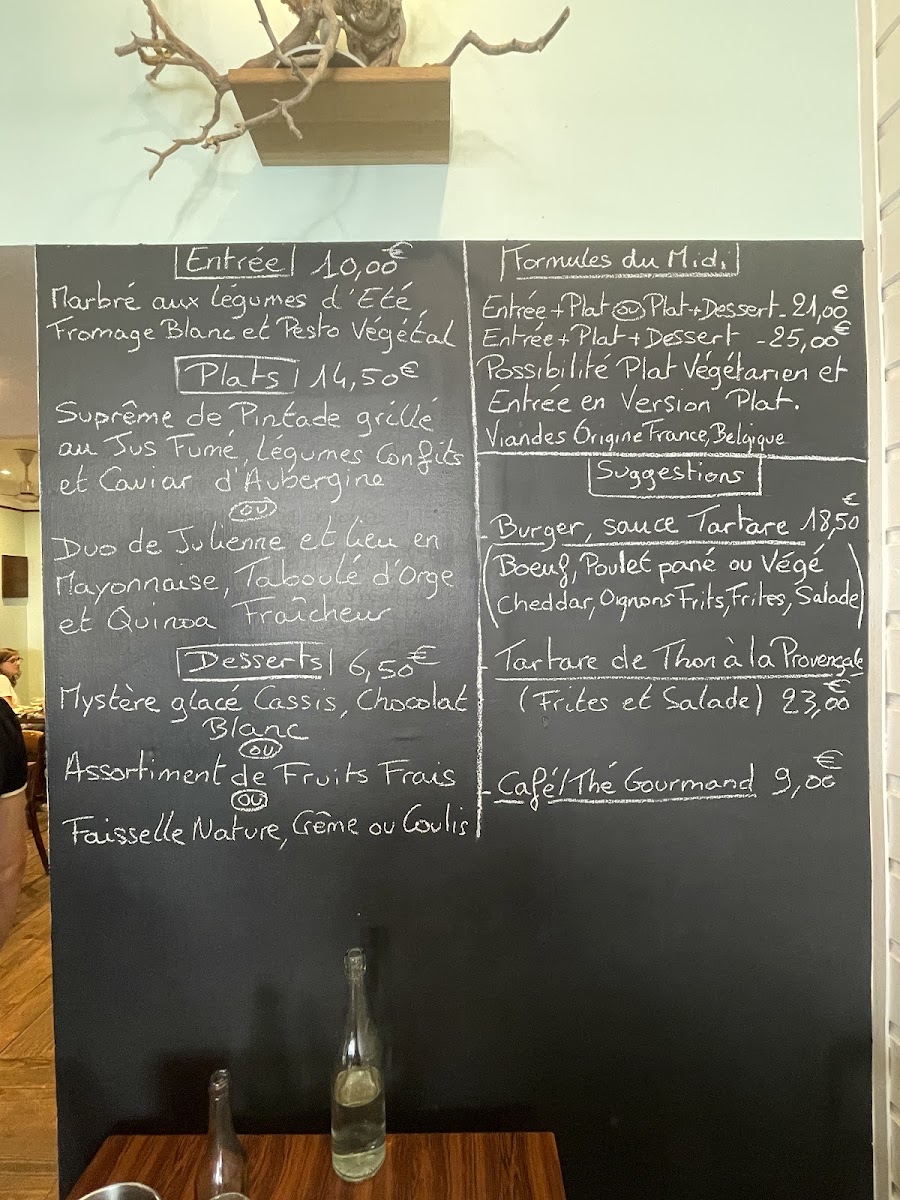 Entrée 10,00€
Marbré aux légumes d'Eté
Fromage Blanc et Pesto Végétal
Plats 14,50€
Suprême de Pintade grillé
au Jus Fumé, légumes Confits
et Caviar d'Aubergine
ou
Duo de Julienne et lieu en
Mayonnaise, Taboulé d'Orge
et Quinoa Fraîcheur
Desserts 6,50€
Mystère glacé Cassis, Chocolat
Blanc
ou
Assortiment de Fruits Frais
ou
Faisselle Nature, Crême ou Coulis
Formules du Midi
Entrée + Plat ou Plat + Dessert - 21,00€
Entrée + Plat + Dessert - 25,00€
Possibilité Plat Végétarien et
Entrée en Version Plat.
Viandes Origine France, Belgique
Suggestions
- Burger, sauce Tartare 18,50€
(Boeuf, Poulet pané ou Végé
Cheddar, Oignons Frits, Frites, Salade)
- Tartare de Thon à la Provençale
(Frites et Salade) 23,00€
- Café/Thé Gourmand 9,00€